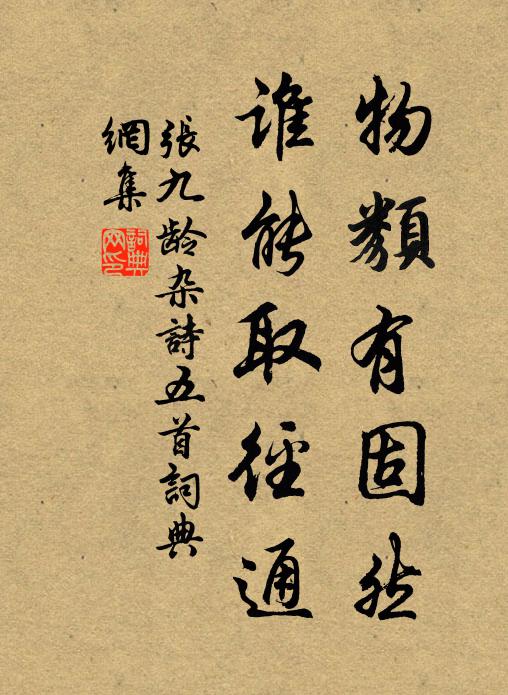 物類有固然
誰能取徑通
張九龄杂詩五首詞典
網集
詞典
网印